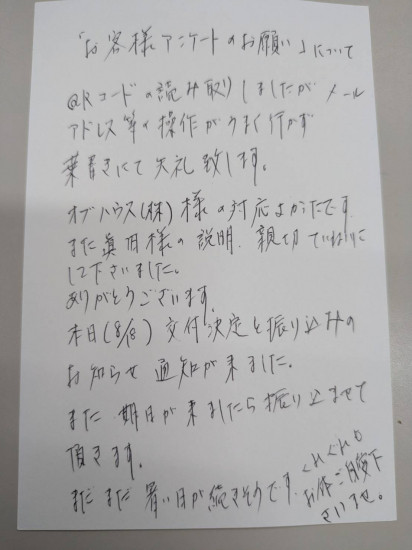 「お客様アンケートのお願い」について
QRコードの読み取りしましたが メール
アドレス等の操作がうまく行かず
葉書きにて失礼致します。
オブハウス(株)様の対応よかったです
また眞田様の説明、親切ていねいに
して下さいました。
ありがとうございます。
本日(8/18) 交付決定と振り込みの
お知らせ 通知が来ました。
また 期日が来ましたら振り込ませて
頂きます。
まだまだ 暑い日が続きそうです、くれぐれも
お体ご自愛下
さいませ。